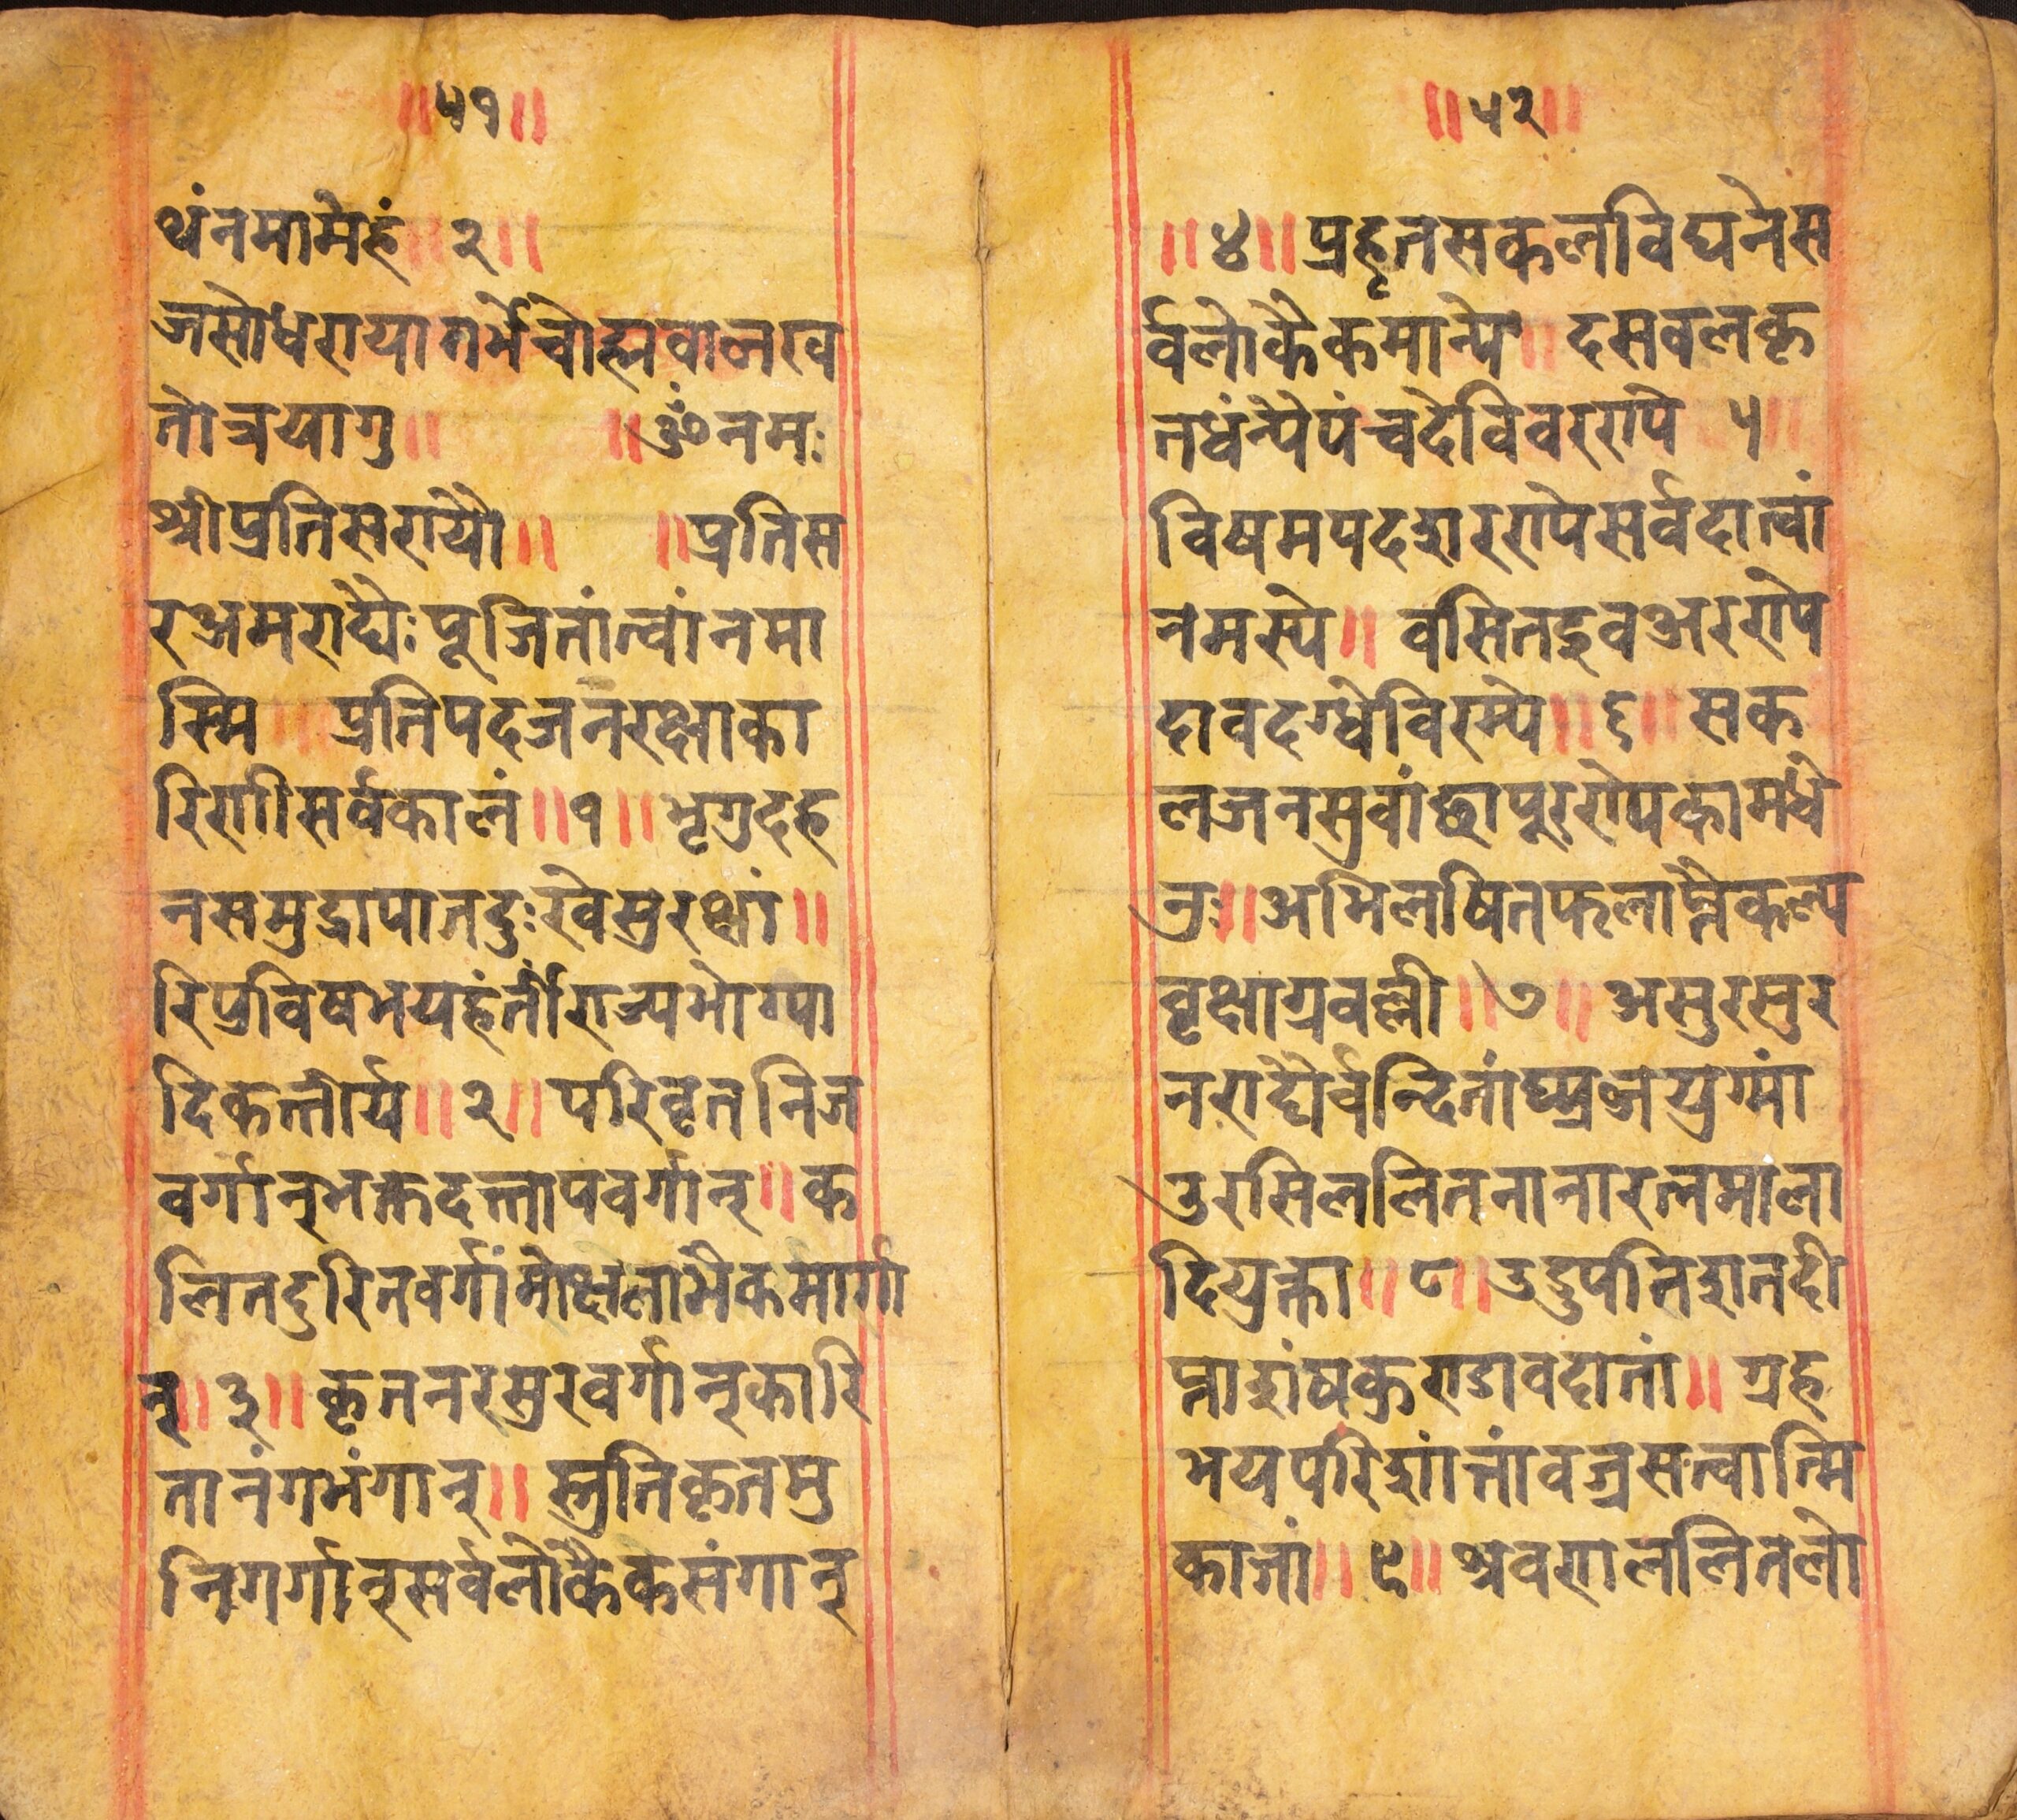 ॥५१॥
थंनमामेहं॥२॥
जसोधरायागर्भेचोह्नवालखव
तोत्रयागु॥ ॥ॐनमः
श्रीप्रतिसरायै॥ ॥प्रतिस
रअमराद्यैःपूजितांत्वांनमा
स्मि॥प्रतिपदजनरक्षाका
रिणीसर्वकालं॥१॥भृगुदह
नसमुद्रापातदुःखेसुरक्षां॥
रिपुविषभयहंतींराज्यभोग्या
दिकर्त्तार्य॥२॥परिवृतनिज
वर्गान्भक्तदत्तापवर्गान्॥क
लितदुरितवर्गांमोक्षलाभैकमार्गा
न्॥३॥कृतनरसुरवर्गान्कारि
तानंगभंगान्॥स्तुतिकृतमु
निगर्गान्सर्वलोकैकसंगान्
॥५२॥
॥४॥प्रहृतसकलविघनेस
र्वलोकैकमान्ये॥दसवलकृ
तधंन्येपंचदेविवरणपे५॥
विषमपदशरणेपसर्वदात्वां
नमस्ये॥वसितइवअरणेप
दावदग्धेविरम्ये॥६॥सक
लजनसुवांछापूरणेपकामधे
नुः॥अभिलषितफलाप्नैकल्प
वृक्षाग्रवल्ली॥७॥असुरसुर
नराद्यैर्वन्दितांघ्य्रब्जयुग्मां
उरसिललितनानारत्नमाला
दियुक्ता॥८॥उडुपतिशतदी
प्नाशंषक्रुण्डावदातां॥ग्रह
भयपरिशांत्तांवज्रसत्वात्मि
काजां॥९॥श्रवणललितलो